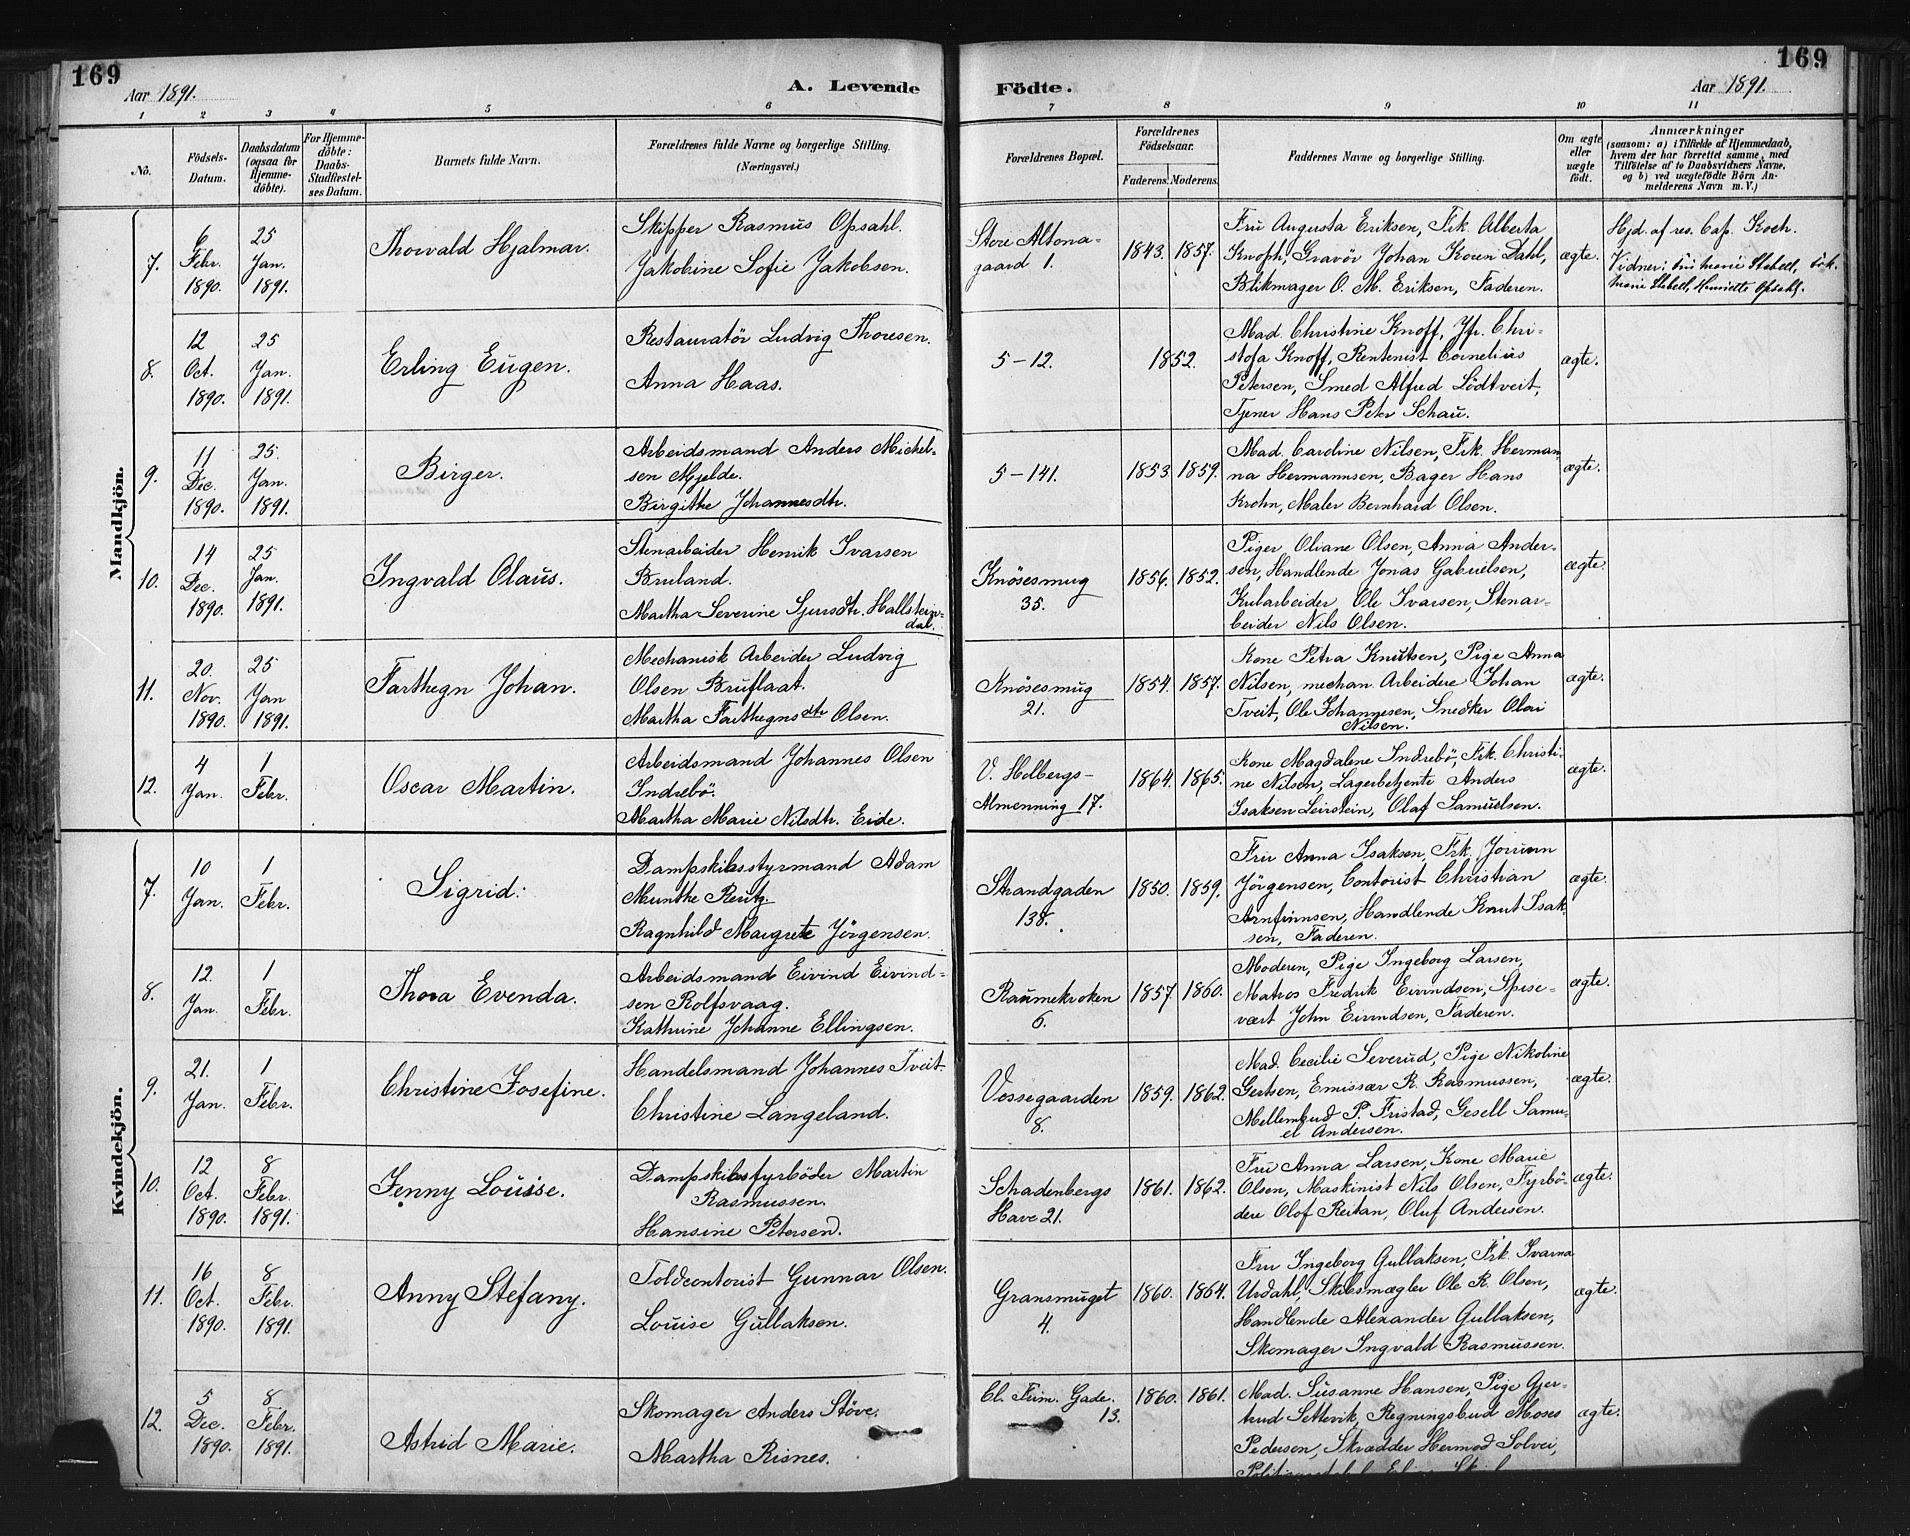 169
169
Aar 1891.
A. Levende
Födte.
Aar 1891.
1 2 3 4 5 6 7 8 9 10 11
No.
Födsels-Datum.
Daabsdatum (ogsaa for Hjemme-döbte).
For Hjemme-döbte: Daabs-Stadfæstel-ses Datum.
Barnets fulde Navn.
Forældrenes fulde Navne og borgerlige Stilling.
(Næringsvei.)
Forældrenes Bopæl.
Forældrenes Födselsaar.
Faderens. Moderens.
Faddernes Navne og borgerlige Stilling.
Om ægte eller uægte födt.
Anmærkninger
(saasom: a) i Tilfælde af Hjemmedaab,
hvem der har forrettet samme, med
Tilföielse af to Daabsvidners Navne,
og b) ved uægtefödte Börn An-
melderens Navn m. V.)
Mandkjön.
7.
6 Febr. 1890.
25 Jan. 1891.
Thorvald Hjalmar.
Skipper Rasmus Opsahl.
Jakobine Sofie Jakobsen.
Store Altona-
gaard 1.
1843. 1857.
Fru Augusta Eriksen, Frk. Alberta
Knoph, Gravör Johan Koren Dahl,
Blikmager O. M. Eriksen, Faderen.
ægte.
Hjd. af res. Cap. Koch.
Vidner: Fru Marie Stabell, Frk.
Marie Stabell, Henriette Opsahl.
8.
12 Oct. 1890.
25 Jan. 1891.
Erling Eugen.
Restauratör Ludvig Thoresen.
Anna Haas.
5-12.
1852.
Mad. Christine Knoff, Jfr. Chri-
stofa Knoff, Rentenist Cornelius
Petersen, Smed Alfred Lödtveit,
Tjener Hans Petr Schau.
ægte.
9.
11 Dec. 1890.
25. Jan. 1891.
Birger.
Arbeidsmand Anders Michel-
sen Mjelde.
Birgithe Johannesdtr.
5-141.
1853. 1859.
Mad. Caroline Nilsen, Frk. Herman-
na Hermannsen, Bager Hans
Krohn, Maler Bernhard Olsen.
ægte.
10.
14 Dec. 1890.
25 Jan. 1891.
Ingvald Olaus.
Stenarbeider Henrik Ivarsen
Bruland.
Martha Severine Sjursdtr. Hallstein-
dal.
Knösesmug
35.
1856. 1852.
Piger Olvane Olsen, Anna Ander-
sen, Handlende Jonas Gabrielsen,
Kularbeider Ole Ivarsen, Stenar-
beider Nils Olsen.
ægte.
11.
20. Nov. 1890.
25 Jan 1891.
Farthegn Johan.
Mechanisk Arbeider Ludvig
Olsen Bruflaat.
Martha Farthegnsdtr Olsen.
Knösesmug
21.
1854. 1857.
Kone Petra Knutsen, Pige Anna
Nilsen, mechan. Arbeidere Johan
Tveit, Ole Johannesen, Snedker Olai
Nilsen.
ægte.
12.
4 Jan.
1 Febr.
Oscar Martin.
Arbeidsmand Johannes Olsen
Indrebö.
Martha Marie Nilsdtr. Eide.
V. Holbergs-
Almenning 17.
1864. 1865.
Kone Magdalene Indrebö, Frk. Christi-
ne Nilsen, Lagerbetjente Anders
Isaksen Leirstein, Olaf Samuelsen.
ægte.
Kvindekjön.
7.
10 Jan.
1 Febr.
Sigrid.
Dampskibsstyrmand Adam
Munthe Reutz.
Ragnhild Margrete Jörgensen.
Strandgaden
138.
1850. 1859.
Fru Anna Isaksen, Frk. Jorunn
Jörgensen, Contorist Christian
Arnfinnsen, Handlende Knut Isak-
sen, Faderen.
ægte.
8.
12. Jan.
1 Febr.
Thora Evenda.
Arbeidsmand Eivind Eivind-
sen Rolfsvaag.
Kathrine Johanne Ellingsen.
Raumekroken
6.
1857. 1860.
Moderen, Pige Ingeborg Larsen,
Matros Fredrik Eivindsen, Spise-
vært John Eivindsen, Faderen.
ægte.
9.
21. Jan.
1 Febr.
Christine Josefine.
Handelsmand Johannes Tveit
Christine Langeland.
Vossegaarden
8.
1859. 1862.
Mad. Cecilie Severud, Pige Nikoline
Gertsen, Emissær R. Rasmussen,
Mellembud P. Fristad, Gesell Samu-
el Andersen.
ægte.
10.
12 Oct. 1890.
8 Febr. 1891.
Jenny Louise.
Dampskibsfyrböder Martin
Rasmussen.
Hansine Petersen.
Schadenbergs
Have 21.
1861. 1862.
Fru Anna Larsen, Kone Marie
Olsen, Maskinist Nils Olsen, Fyrbö-
dere Olof Reitan, Oluf Andersen.
ægte.
11.
16 Oct. 1890.
8 Febr. 1891.
Anny Stefany.
Toldcontorist Gunnar Olsen.
Louise Gullaksen.
Gransmuget
4.
1860. 1864.
Fru Ingeborg Gullaksen, Frk. Ivarna
Urdahl, Skibsmægler Ole R. Olsen,
Handlende Alexander Gullaksen,
Skomager Ingvald Rasmussen.
ægte.
12.
5 Dec. 1890.
8 Febr. 1891.
Astrid Marie.
Skomager Anders Stöve.
Martha Risnes.
Cl. Frim. Gade.
13.
1860. 1861.
Mad. Susanne Hansen, Pige Gjer-
trud Settevik, Regningsbud Moses
Pedersen, Skrædder Hermod Solvei,
ægte.